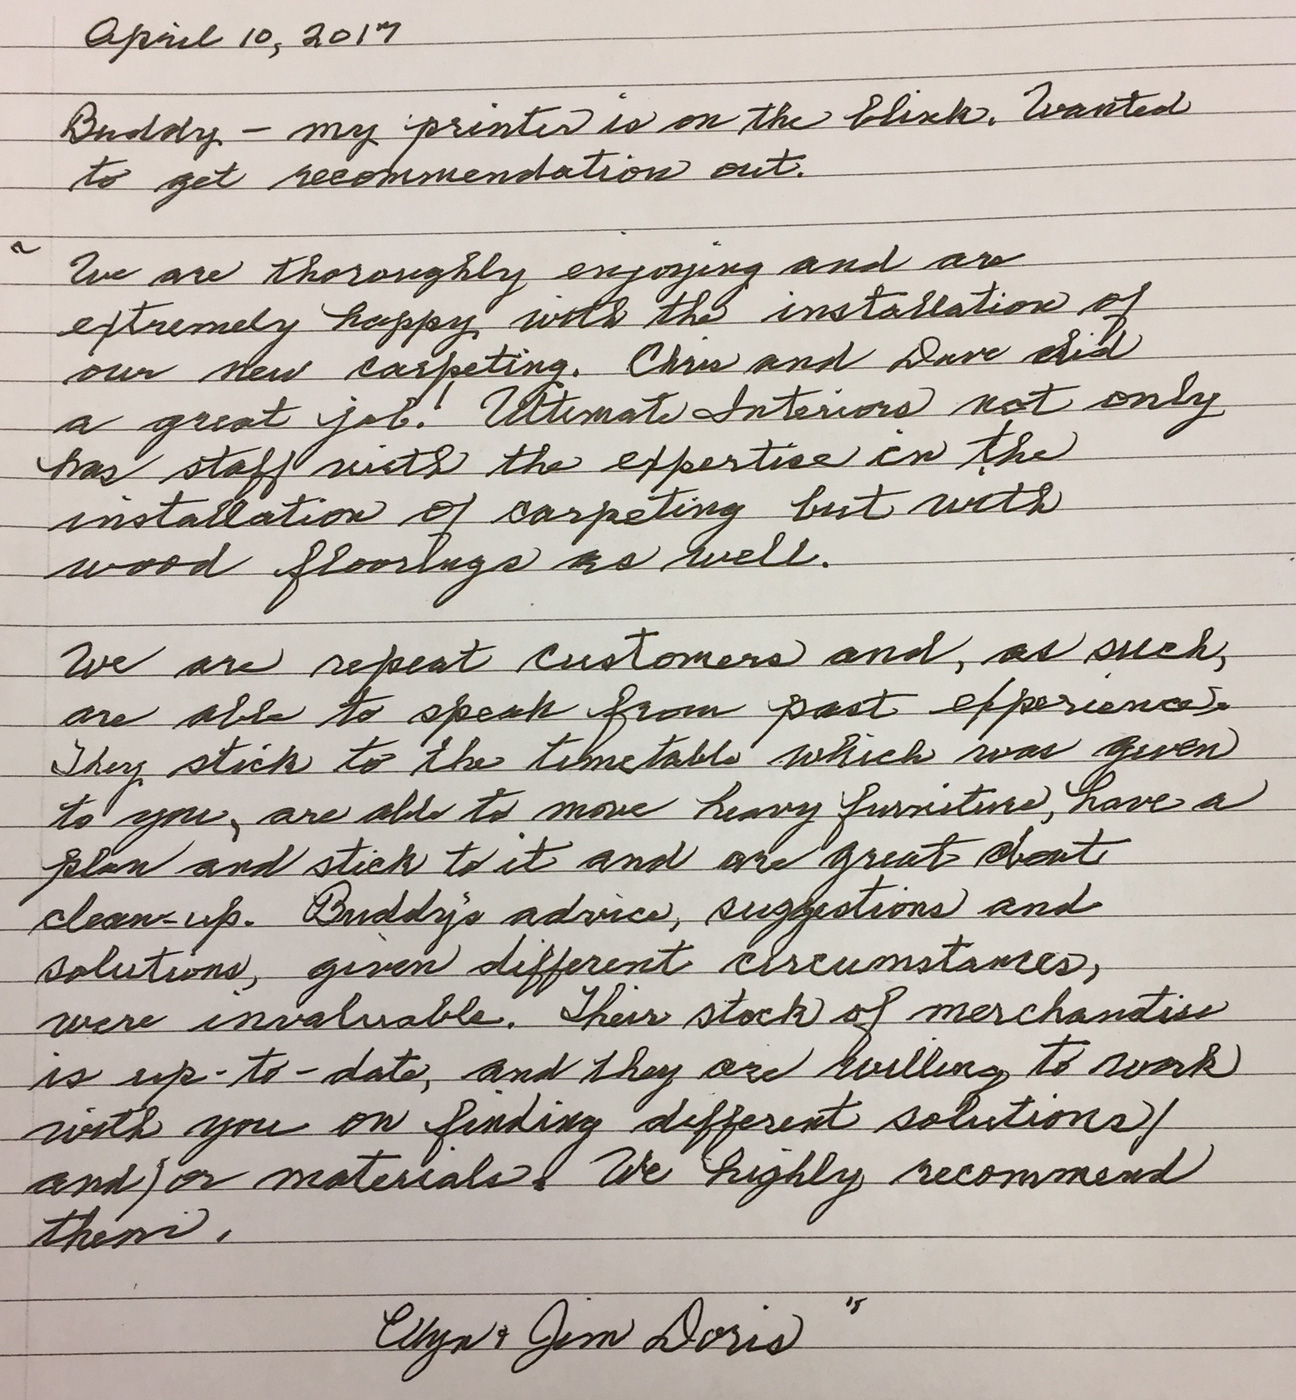 April 10, 2017
Buddy - my printer is on the blink. Wanted
to get recommendation out.
" We are thoroughly enjoying and are
extremely happy with the installation of
our new carpeting. Chris and Dave did
a great job! Ultimate Interiors not only
has staff with the expertise in the
installation of carpeting but with
wood floorings as well.
We are repeat customers and, as such,
are able to speak from past experience.
They stick to the timetable which was given
to you, are able to move heavy furniture, have a
plan and stick to it and are great about
clean-up. Buddy's advice, suggestions and
solutions, given different circumstances,
were invaluable. Their stock of merchandise
is up-to-date, and they are willing to work
with you on finding different solutions/
and/or materials. We highly recommend
them.
Ellyn & Jim Doris "